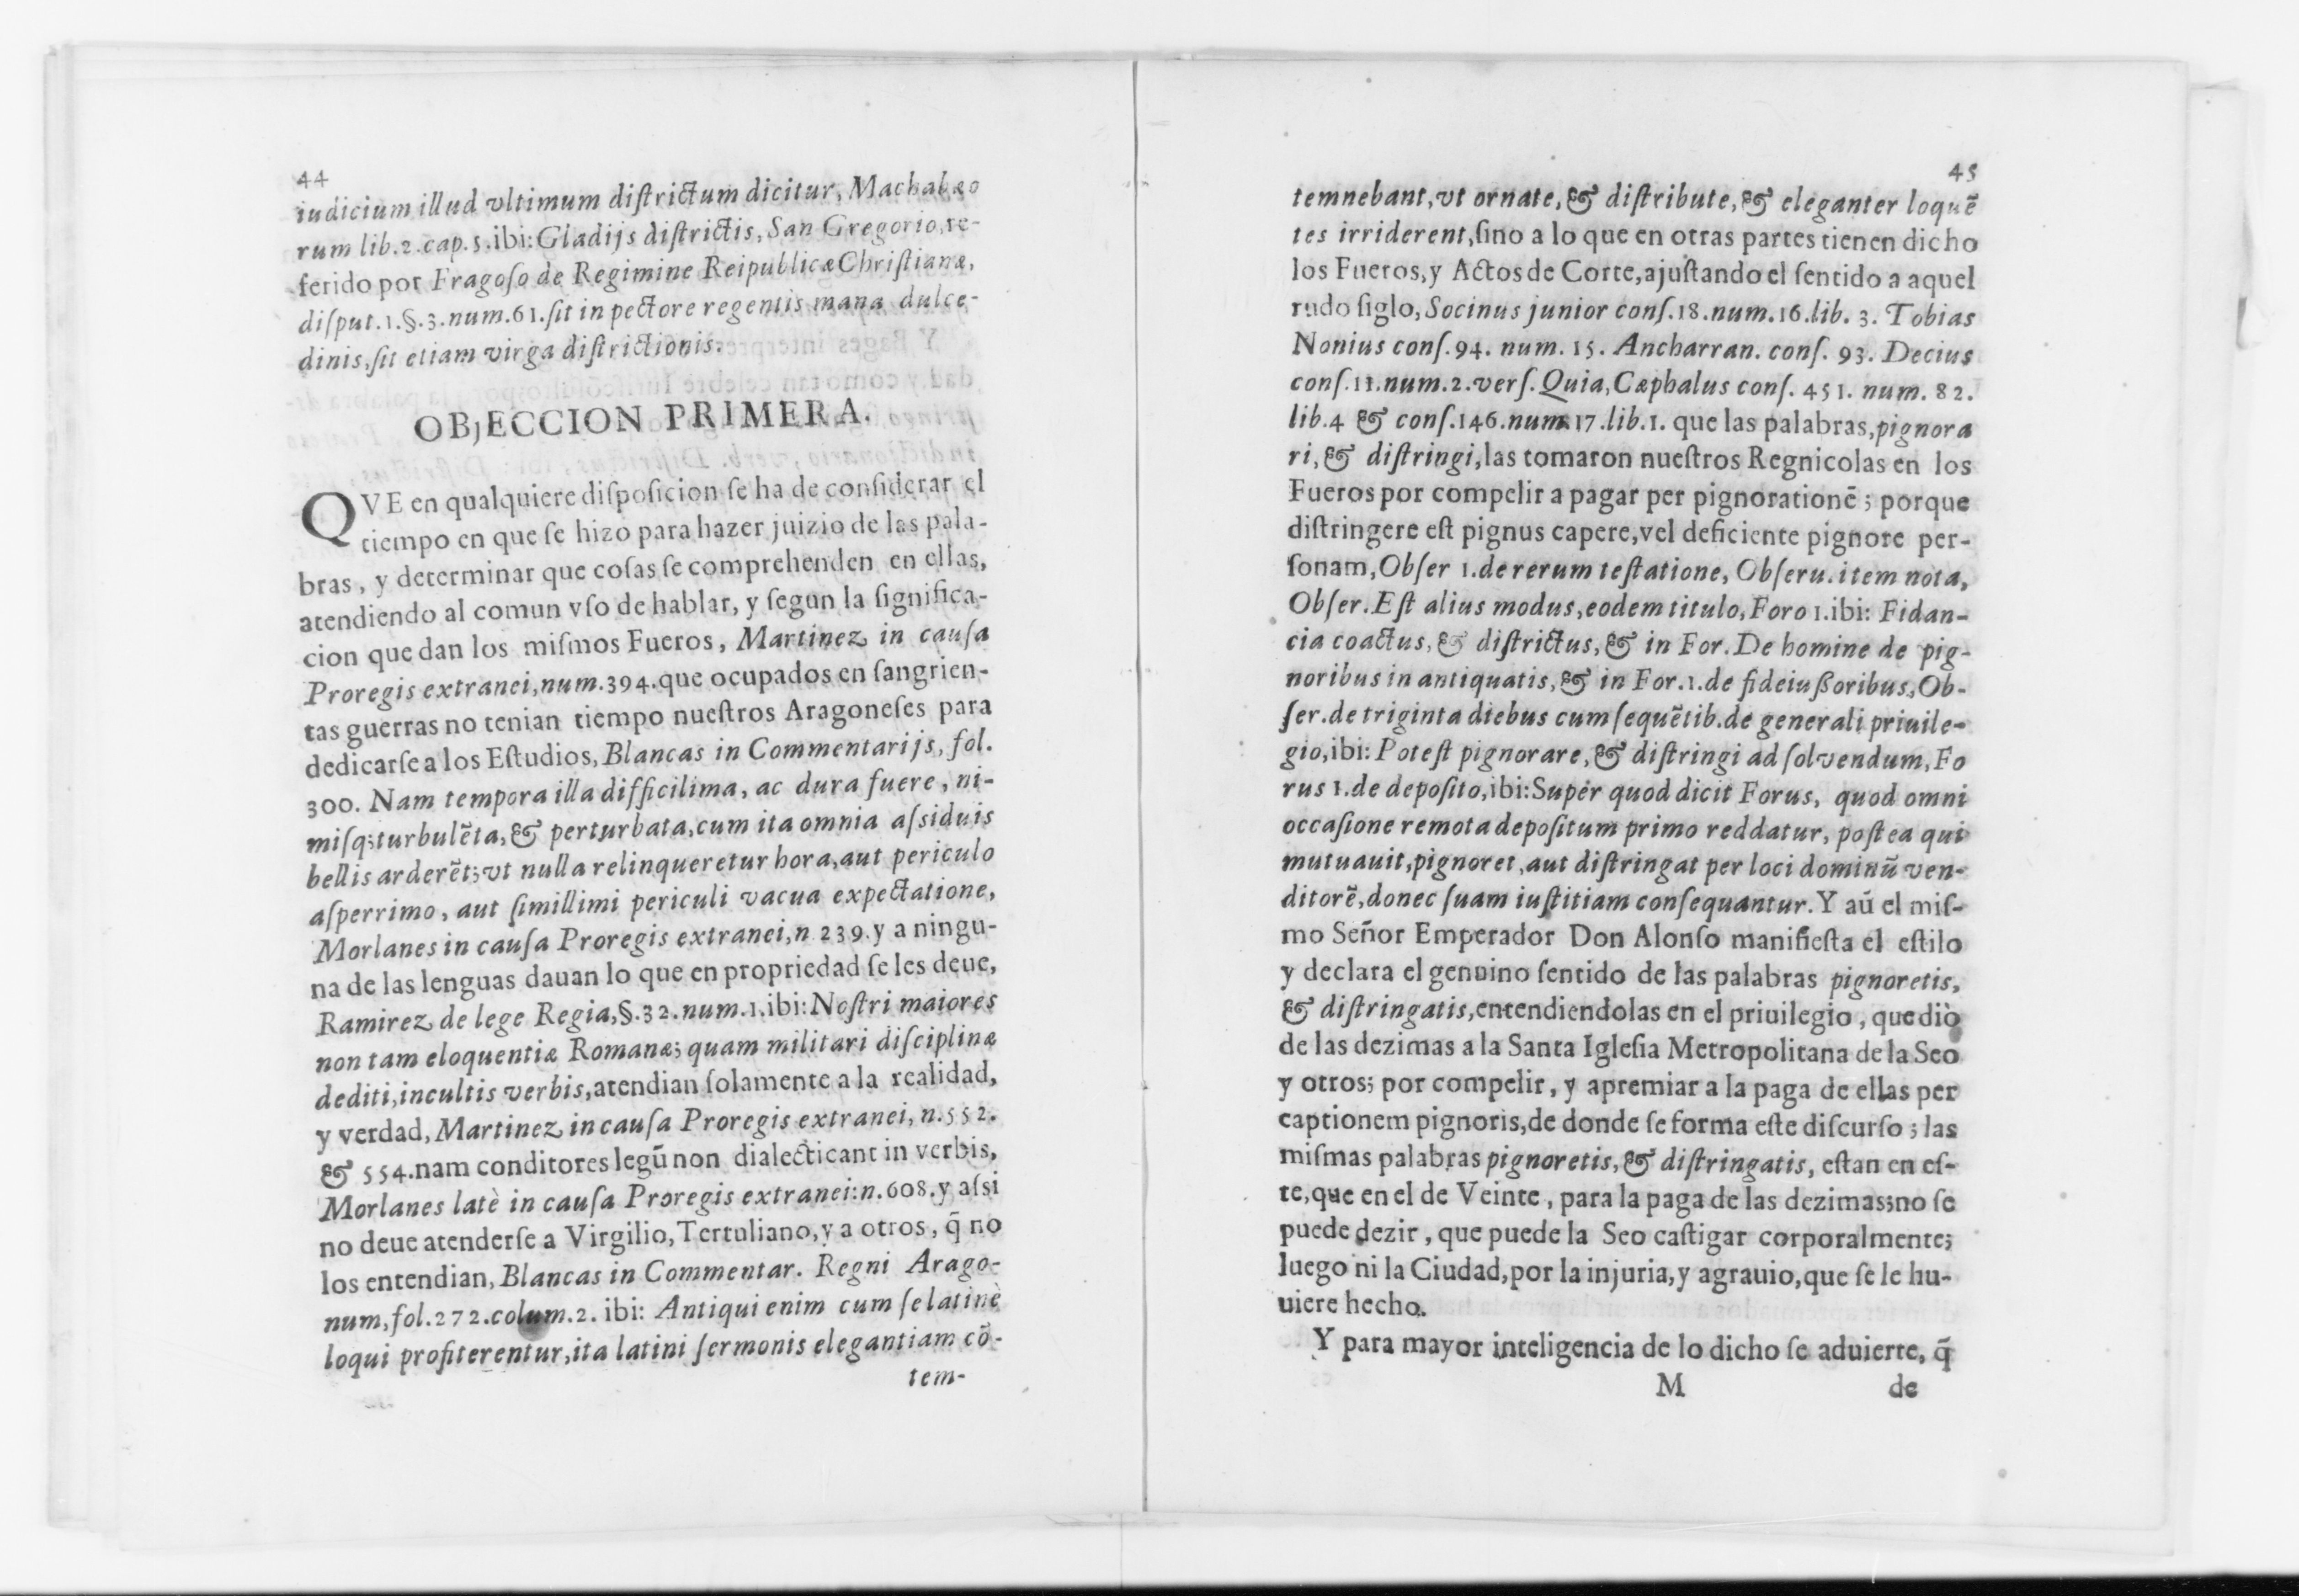 44
iudicium illud vltimum diſtrictum dicitur, Machabæo
rum lib.2.cap.5.ibi: Gladijs diſtrictis, San Gregorio, re-
ferido por Fragoſo de Regimine Reipublicæ Chriſtianæ,
diſput.1.§.3.num.61.ſit in pectore regentis mana dulce-
dinis, ſit etiam virga diſtrictionis.
OBjECCION PRIMERA.
QVE en qualquiere diſpoſicion ſe ha de conſiderar el
tiempo en que ſe hizo para hazer juizio de las pala-
bras, y determinar que coſas ſe comprehenden en ellas,
atendiendo al comun vſo de hablar, y ſegun la ſignifica-
cion que dan los miſmos Fueros, Martinez in cauſa
Proregis extranei, num.394.que ocupados en ſangrien-
tas guerras no tenian tiempo nueſtros Aragoneſes para
dedicarſe a los Eſtudios, Blancas in Commentarijs, fol.
300. Nam tempora illa difficilima, ac dura fuere, ni-
miſq; turbulẽta, & perturbata, cum ita omnia aſsiduis
bellis arderẽt; vt nulla relinqueretur hora, aut periculo
aſperrimo, aut ſimillimi periculi vacua expectatione,
Morlanes in cauſa Proregis extranei, n 239.y a ningu-
na de las lenguas dauan lo que en propriedad ſe les deue,
Ramirez de lege Regia, §.32.num.1.ibi: Noſtri maiores
non tam eloquentiæ Romanæ; quam militari diſciplinæ
dediti, incultis verbis, atendian ſolamente a la realidad,
y verdad, Martinez in cauſa Proregis extranei, n.552.
& 554.nam conditores legũ non dialecticant in verbis,
Morlanes latè in cauſa Proregis extranei: n.608.y aſsi
no deue atenderſe a Virgilio, Tertuliano, y a otros, q̃ no
los entendian, Blancas in Commentar. Regni Arago-
num, fol.272.colum.2. ibi: Antiqui enim cum ſe latinè
loqui profiterentur, ita latini ſermonis elegantiam cõ-
tem-
45
temnebant, vt ornate, & diſtribute, & eleganter loquẽ
tes irriderent, ſino a lo que en otras partes tienen dicho
los Fueros, y Actos de Corte, ajuſtando el ſentido a aquel
rudo ſiglo, Socinus junior conſ.18.num.16.lib. 3. Tobias
Nonius conſ.94. num. 15. Ancharran. conſ. 93. Decius
conſ.11.num.2.verſ. Quia, Cæphalus conſ. 451. num. 82.
lib.4 & conſ.146.num.17.lib.1. que las palabras, pignora
ri, & diſtringi, las tomaron nueſtros Regnicolas en los
Fueros por compelir a pagar per pignorationẽ; porque
diſtringere eſt pignus capere, vel deficiente pignore per-
ſonam, Obſer 1.de rerum teſtatione, Obſeru. item nota,
Obſer. Eſt alius modus, eodem titulo, Foro 1.ibi: Fidan-
cia coactus, & diſtrictus, & in For. De homine de pig-
noribus in antiquatis, & in For.1.de fideiuſſoribus, Ob-
ſer.de triginta diebus cum ſequẽtib.de generali priuile-
gio, ibi: Poteſt pignorare, & diſtringi ad ſolvendum, Fo
rus 1.de depoſito, ibi: Super quod dicit Forus, quod omni
occaſione remota depoſitum primo reddatur, poſtea qui
mutuauit, pignoret, aut diſtringat per loci dominũ ven-
ditorẽ, donec ſuam iuſtitiam conſequantur. Y aũ el miſ-
mo Señor Emperador Don Alonſo manifieſta el eſtilo
y declara el genuino ſentido de las palabras pignoretis,
& diſtringatis, entendiendolas en el priuilegio, que diò
de las dezimas a la Santa Igleſia Metropolitana de la Seo
y otros; por compelir, y apremiar a la paga de ellas per
captionem pignoris, de donde ſe forma eſte diſcurſo; las
miſmas palabras pignoretis, & diſtringatis, eſtan en eſ-
te, que en el de Veinte, para la paga de las dezimas; no ſe
puede dezir, que puede la Seo caſtigar corporalmente;
luego ni la Ciudad, por la injuria, y agrauio, que ſe le hu-
uiere hecho.
Y para mayor inteligencia de lo dicho ſe aduierte, q̃
M de